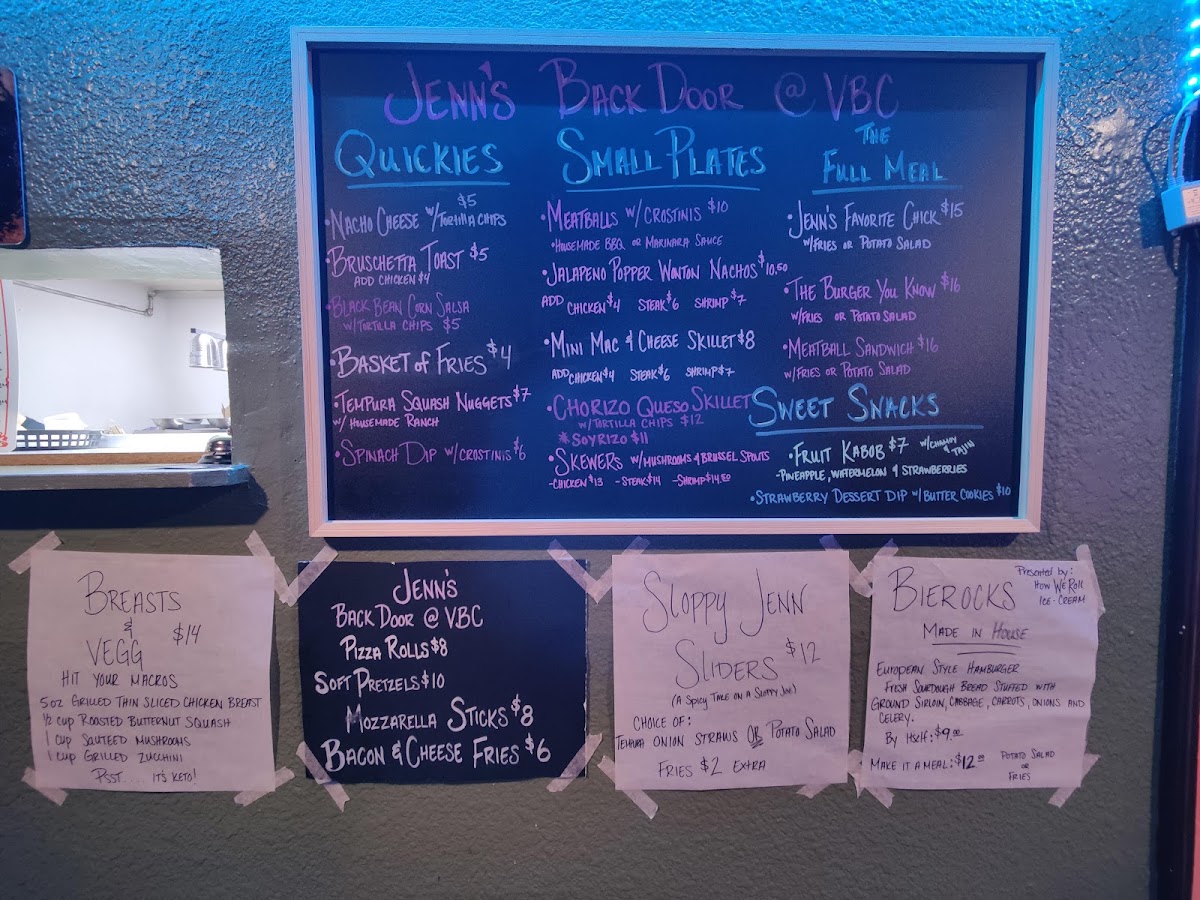 JENN'S BACK DOOR @ VBC
QUICKIES
NACHO CHEESE W/TORTILLA CHIPS $5
BRUSCHETTA TOAST $5
ADD CHICKEN $4
BLACK BEAN CORN SALSA
W/TORTILLA CHIPS $5
BASKET OF FRIES $4
TEMPURA SQUASH NUGGETS $7
W/ HOUSEMADE RANCH
SPINACH DIP W/CROSTINIS $6
SMALL PLATES
MEATBALLS W/CROSTINIS $10
HOUSEMADE BBQ OR MARINARA SAUCE
JALAPENO POPPER WONTON NACHOS $10.50
ADD CHICKEN $4 STEAK $6 SHRIMP $7
MINI MAC & CHEESE SKILLET $8
ADD CHICKEN $4 STEAK $6 SHRIMP $7
CHORIZO QUESO SKILLET
W/TORTILLA CHIPS $12
*SOYRIZO $11
SKEWERS W/MUSHROOMS & BRUSSEL SPOUTS
-CHICKEN $13 -STEAK $14 -SHRIMP $14.50
THE
FULL MEAL
JENN'S FAVORITE CHICK $15
W/FRIES OR POTATO SALAD
THE BURGER YOU KNOW $16
W/FRIES OR POTATO SALAD
MEATBALL SANDWICH $16
W/FRIES OR POTATO SALAD
SWEET SNACKS
FRUIT KABOB $7 W/CHAMOY & TAJIN
-PINEAPPLE, WATERMELON & STRAWBERRIES
STRAWBERRY DESSERT DIP W/BUTTER COOKIES $10
BREASTS
&
VEGG $14
HIT YOUR MACROS
5oz GRILLED THIN SLICED CHICKEN BREAST
1/2 CUP ROASTED BUTTERNUT SQUASH
1 CUP SAUTEED MUSHROOMS
1 CUP GRILLED ZUCCHINI
PSST..... IT'S KETO!
JENN'S
BACK DOOR @ VBC
PIZZA ROLLS $8
SOFT PRETZELS $10
MOZZARELLA STICKS $8
BACON & CHEESE FRIES $6
SLOPPY JENN
SLIDERS $12
(A SPICY TALE ON A SLOPPY JOE)
CHOICE OF:
TEMPURA ONION STRAWS OR POTATO SALAD
FRIES $2 EXTRA
BIEROCKS
Presented by:
HOW WE ROLL
ICE-CREAM
MADE IN HOUSE
EUROPEAN STYLE HAMBURGER
FRESH SOURDOUGH BREAD STUFFED WITH
GROUND SIRLOIN, CABBAGE, CARROTS, ONIONS AND
CELERY.
BY ITSELF: $9.00
MAKE IT A MEAL: $12.00 POTATO SALAD
OR
FRIES